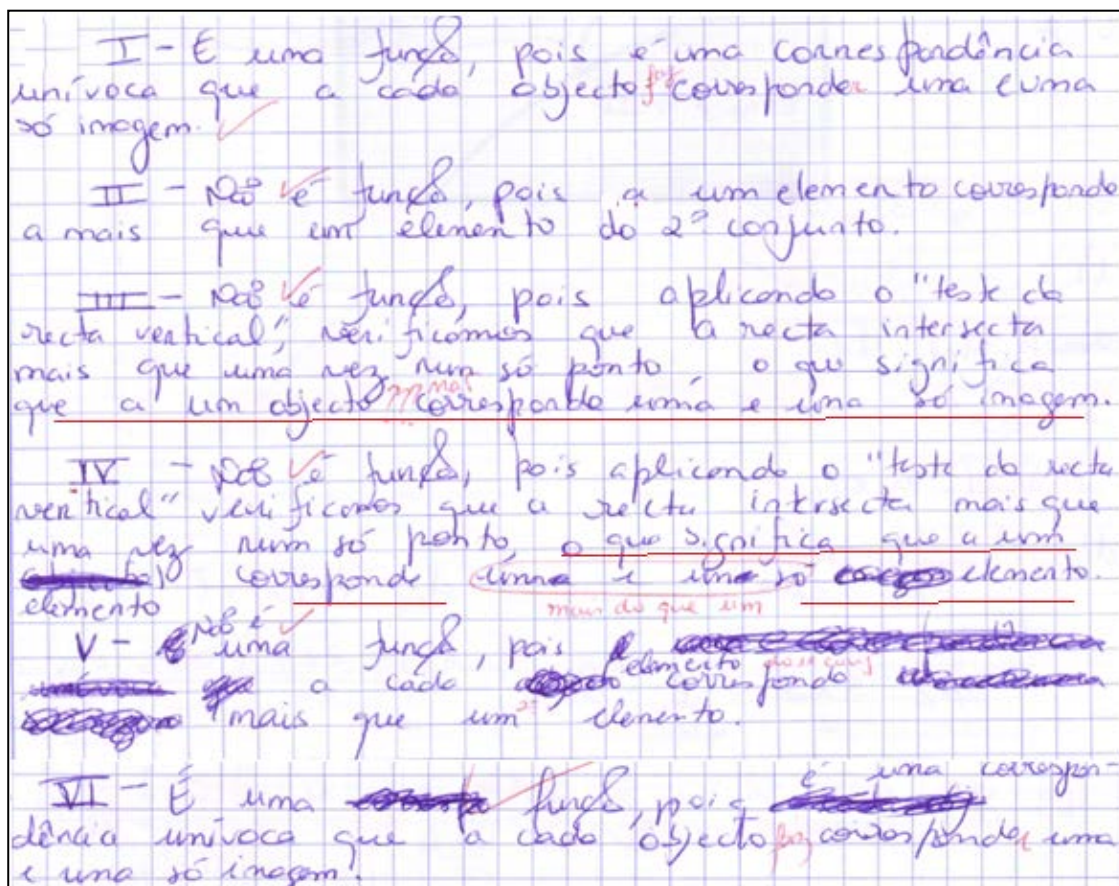 I - É uma função, pois é uma correspondência
unívoca que a cada objecto faz corresponder uma e uma
só imagem.
II - Não é função, pois a um elemento corresponde
a mais que um elemento do 2º conjunto.
III - Não é função, pois aplicando o "teste da
recta vertical", verificamos que a recta intersecta
mais que uma vez num só ponto, o que significa
que a um objecto não corresponde uma e uma só imagem.
IV - Não é função, pois aplicando o "teste da recta
vertical" verificamos que a recta intersecta mais que
uma vez num só ponto, o que significa que a um
elemento corresponde uma e uma só elemento.
mais do que um
V - Não é uma função, pois
a cada elemento corresponde
mais que um elemento.
VI - É uma função, pois é uma correspon-
dência unívoca que a cada objecto faz corresponder uma
e uma só imagem.